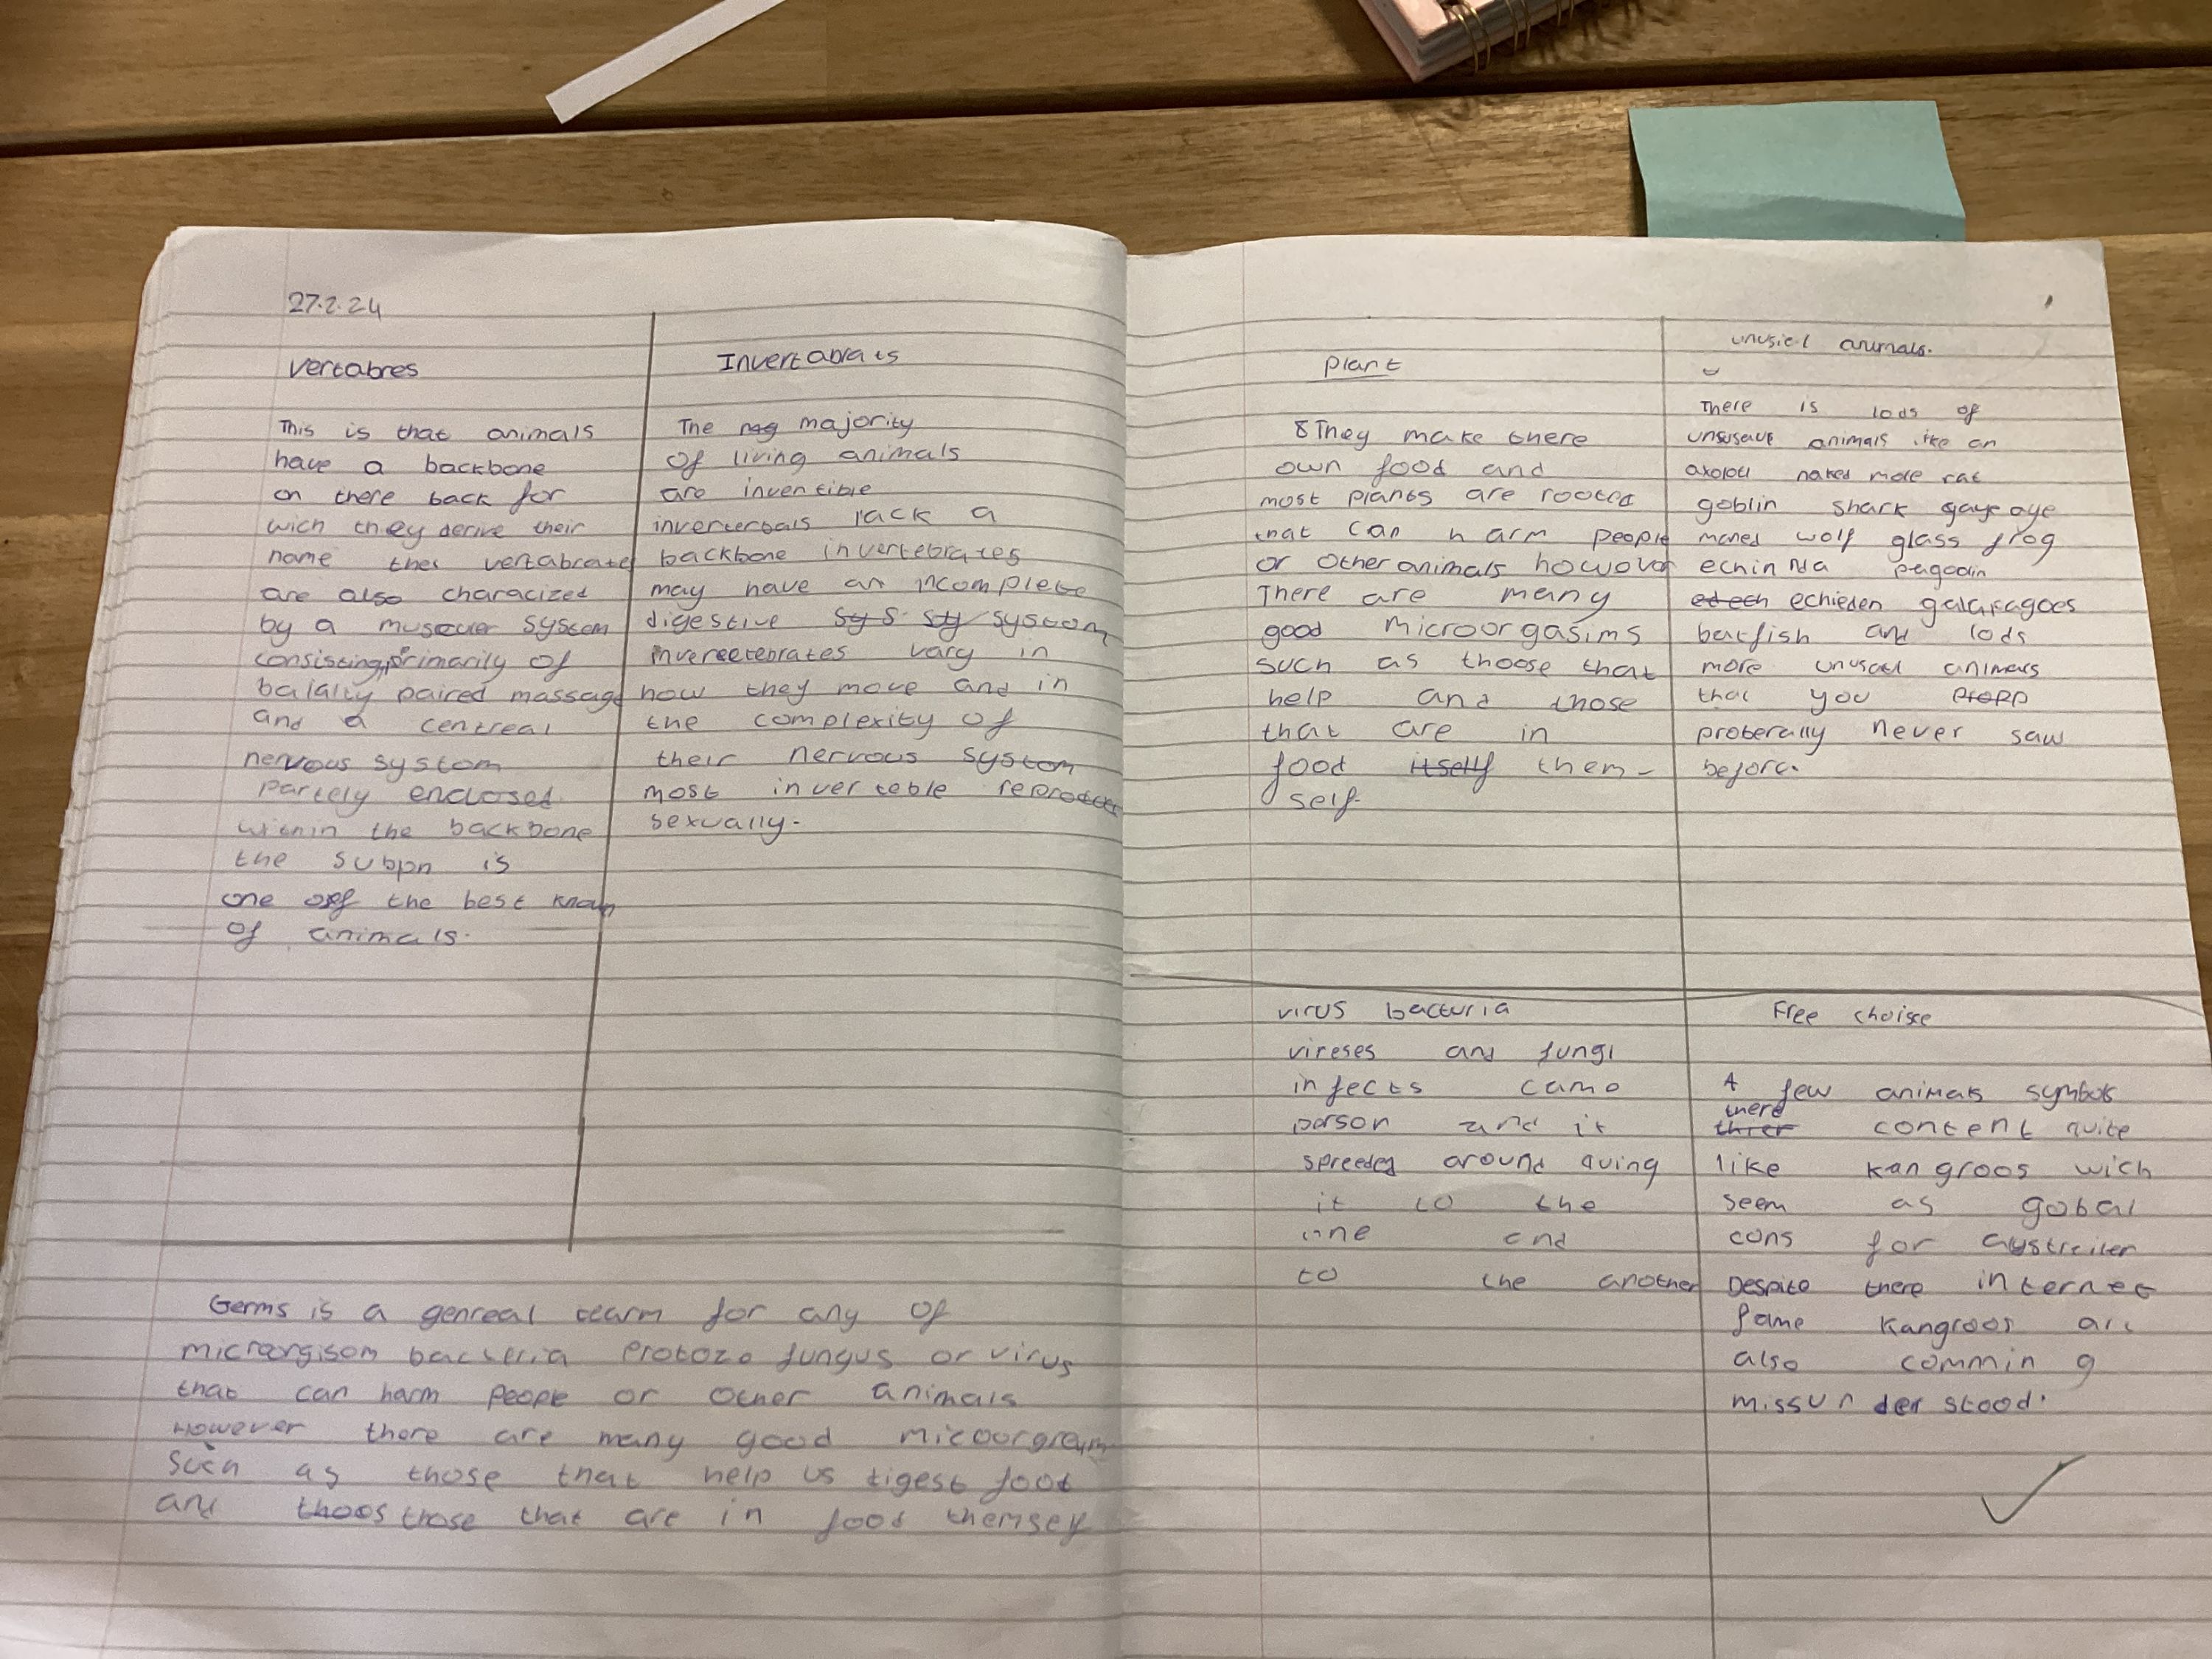 27.2.24
vertabres
This is that animals
have a backbone
on there back for
wich they derive their
name thes vertabrate
are also characized
by a muscuer system
consisting primarily of
balalty paired massage
and a centreal
nervous system
partely enclosed
within the backbone
the subpn is
one off the best known
of animals.
Invertabrats
The mag majority
of living animals
are inventible
inverterbals lack a
backbone invertebrates
may have an incomplete
digestive sys sty system
inverectebrates vary in
how they move and in
the complexity of
their nervous system
most inverteble
sexually.
Germs is a genreal tearm for any of
microrgisom bacteria Protozo fungus or virus
that can harm people or other animals
However there are many good
such as those that help us tigest food
and thoos those that are in food themself
plant
They make there
own food and
most plants are rooted
that can harm people
or other animals howovor
There are many
good microorgasims
such as thoose that
help and those
that are in
food itself them-
self.
animals.
There is lods of
animals like an
axolotl naked mole rat
goblin shark gaye aye
maned wolf glass frog
echinda pagodin
echieden galapagoes
batfish and lods
more unusaul animals
that you
proberally never saw
before.
virus bacturia
vireses and fungi
infects camo
person and it
spreeded around
it to the
one and
to the another
Free choisce
A few animals symbols
there
threr content quite
like kangroos wich
seem as gobal
cons for
Despite there internet
fame kangroos are
also commin g
missun der stood.